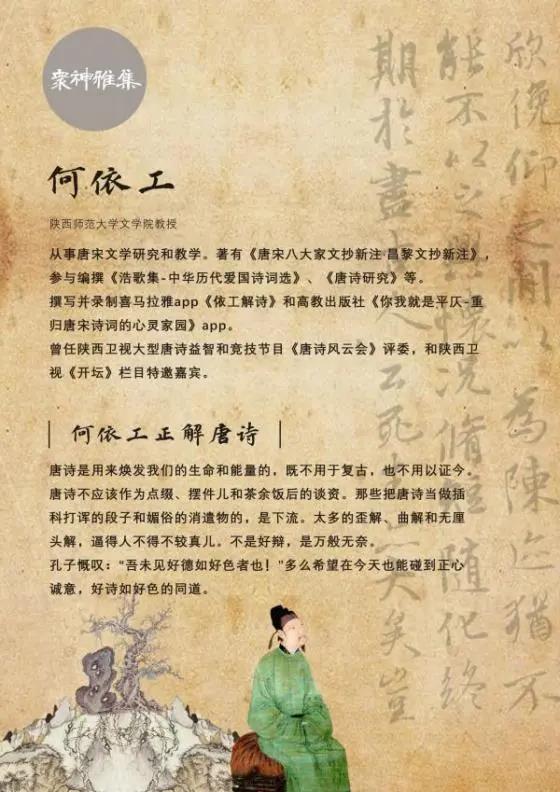 衆神雅集
何依工
陕西师范大学文学院教授
从事唐宋文学研究和教学。著有《唐宋八大家文抄新注·昌黎文抄新注》，
参与编撰《浩歌集-中华历代爱国诗词选》、《唐诗研究》等。
撰写并录制喜马拉雅app《依工解诗》和高教出版社《你我就是平仄-重
归唐宋诗词的心灵家园》app。
曾任陕西卫视大型唐诗益智和竞技节目《唐诗风云会》评委，和陕西卫
视《开坛》栏目特邀嘉宾。
何依工正解唐诗
唐诗是用来焕发我们的生命和能量的，既不用于复古，也不用以证今。
唐诗不应该作为点缀、摆件儿和茶余饭后的谈资。那些把唐诗当做插
科打诨的段子和媚俗的消遣物的，是下流。太多的歪解、曲解和无厘
头解，逼得人不得不较真儿。不是好辩，是万般无奈。
孔子慨叹：“吾未见好德如好色者也！”多么希望在今天也能碰到正心
诚意，好诗如好色的同道。
欣俛仰之間以為陳迹猶不
能不以之興懷況脩短隨化終
期於盡人云死生大矣豈